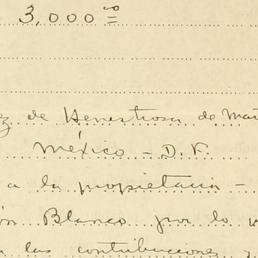 3,000 00
z de Henestrosa de Ma
México - D. F.
a la propietaria -
ón Blanco por lo
las contribuciones y